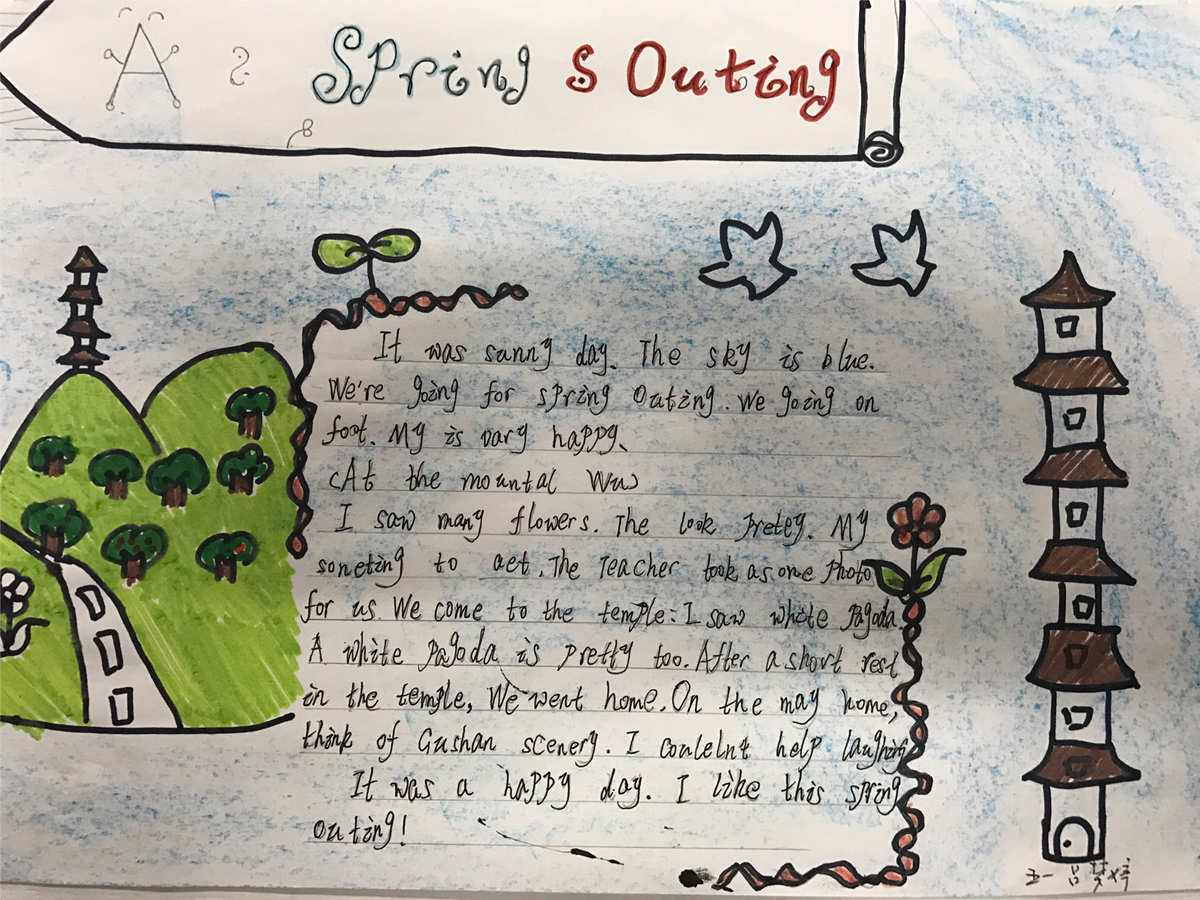 A s Spring s Outing
It was sunny day. The sky is blue.
We're going for spring outing. We going on
foot. My is vary happy.
(At the mountal Wu)
I saw many flowers. The look pretey. My
soneting to aet. The Teacher took as one photo
for us. We come to the temple: I saw white pagoda
A white pagoda is pretty too. After a short rest
in the temple, We went home. On the may home,
think of Gushan scenery. I couleln't help laughing
It was a happy day. I like this spring
outing!
五一 吕梦婷